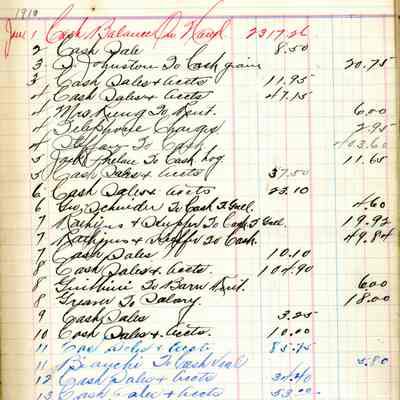 1910
June 1 Cash Balance On Hand 2317.26
2 Cash Sale 8.50
3 Johnston To Cash grain 20.75
3 Cash Sales & Accts 11.95
4 Cash Sales & Accts 47.15
4 Mrs To Rent. 6.00
4 Telephone Charges 2.95
4 To Cash 403.60
5 Phelan To Cash hog 11.65
5 Cash Sales & Accts 37.50
6 Cash Sales & Accts 23.10
6 Geo. Schneider To Cash F. Gall. 4.60
7 Mathews & To Cash F. Gall. 19.92
7 Mathews & To Cash. 49.84
7 Cash Sales 10.10
8 Cash Sales & Accts. 104.90
8 To Barn Rent. 6.00
8 To Salary. 18.00
9 Cash Sales 3.25
10 Cash Sales & Accts. 10.00
11 Cash Sales & Accts 85.75
11 To Cash Veal 5.80
12 Cash Sales & Accts 34.40
13 Cash Sales & Accts